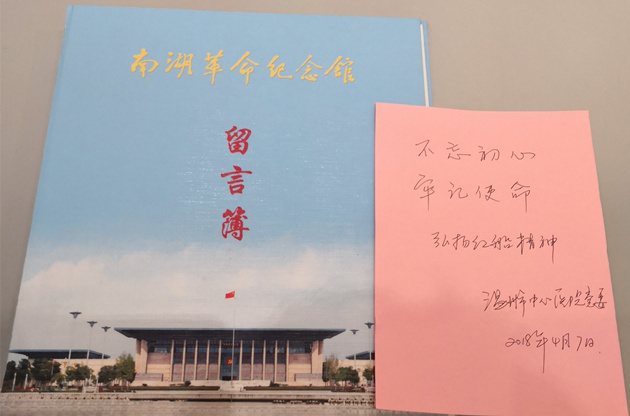 南湖革命纪念馆
留言簿
不忘初心
牢记使命
弘扬红船精神
温州市中心医院党委
2018年4月7日